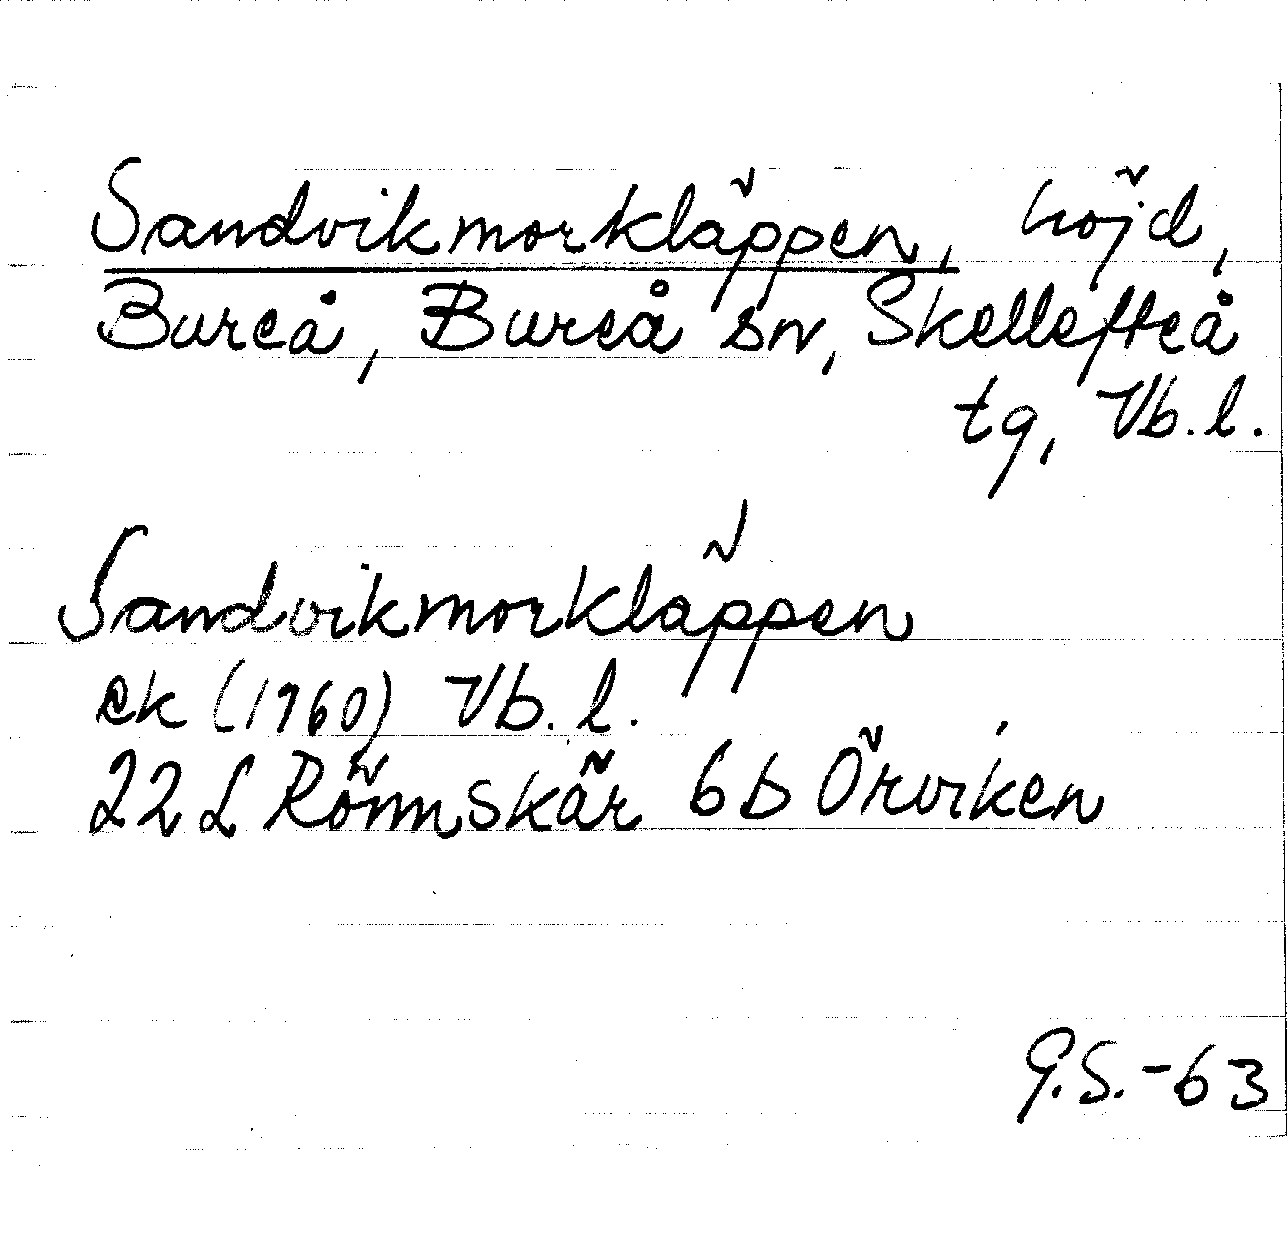 Sandvikmorkläppen, höjd,
Bureå, Bureå sn, Skellefteå
tg, Vb. l.
Sandvikmorkläppen
ek (1960) Vb. l.
22 L Rönnskär 6b Örviken
G.S.-63